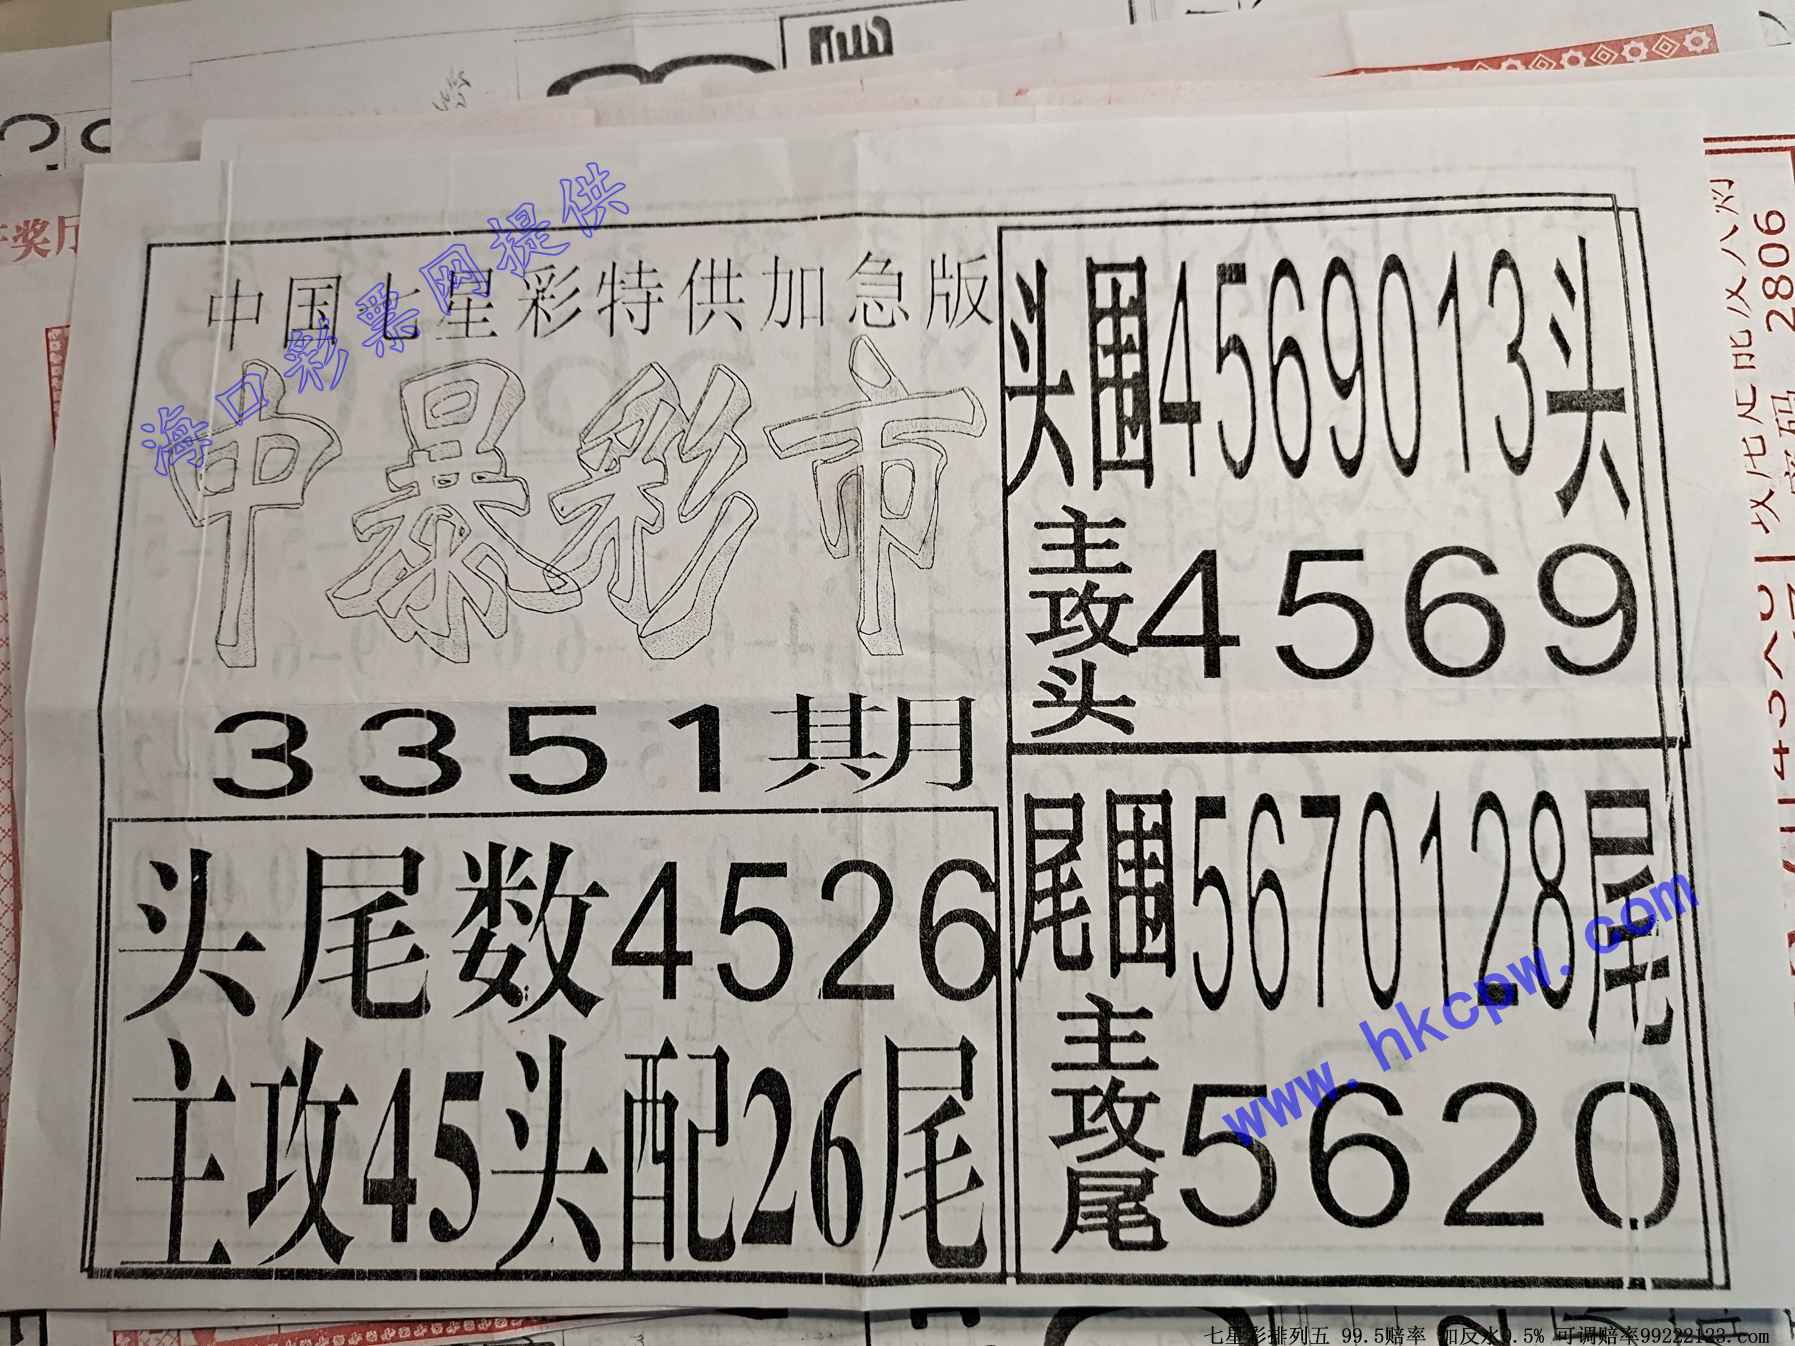 海口彩票网提供
中国七星彩特供加急版
中暴彩市
3351期
头尾数4526
主攻45头配26尾
头围4569013头
主攻头4569
尾围5670128尾
主攻尾5620
www.hkcpw.com
2806
七星彩排列五 99.5赔率 加反水9.5% 可调赔率99222123.com